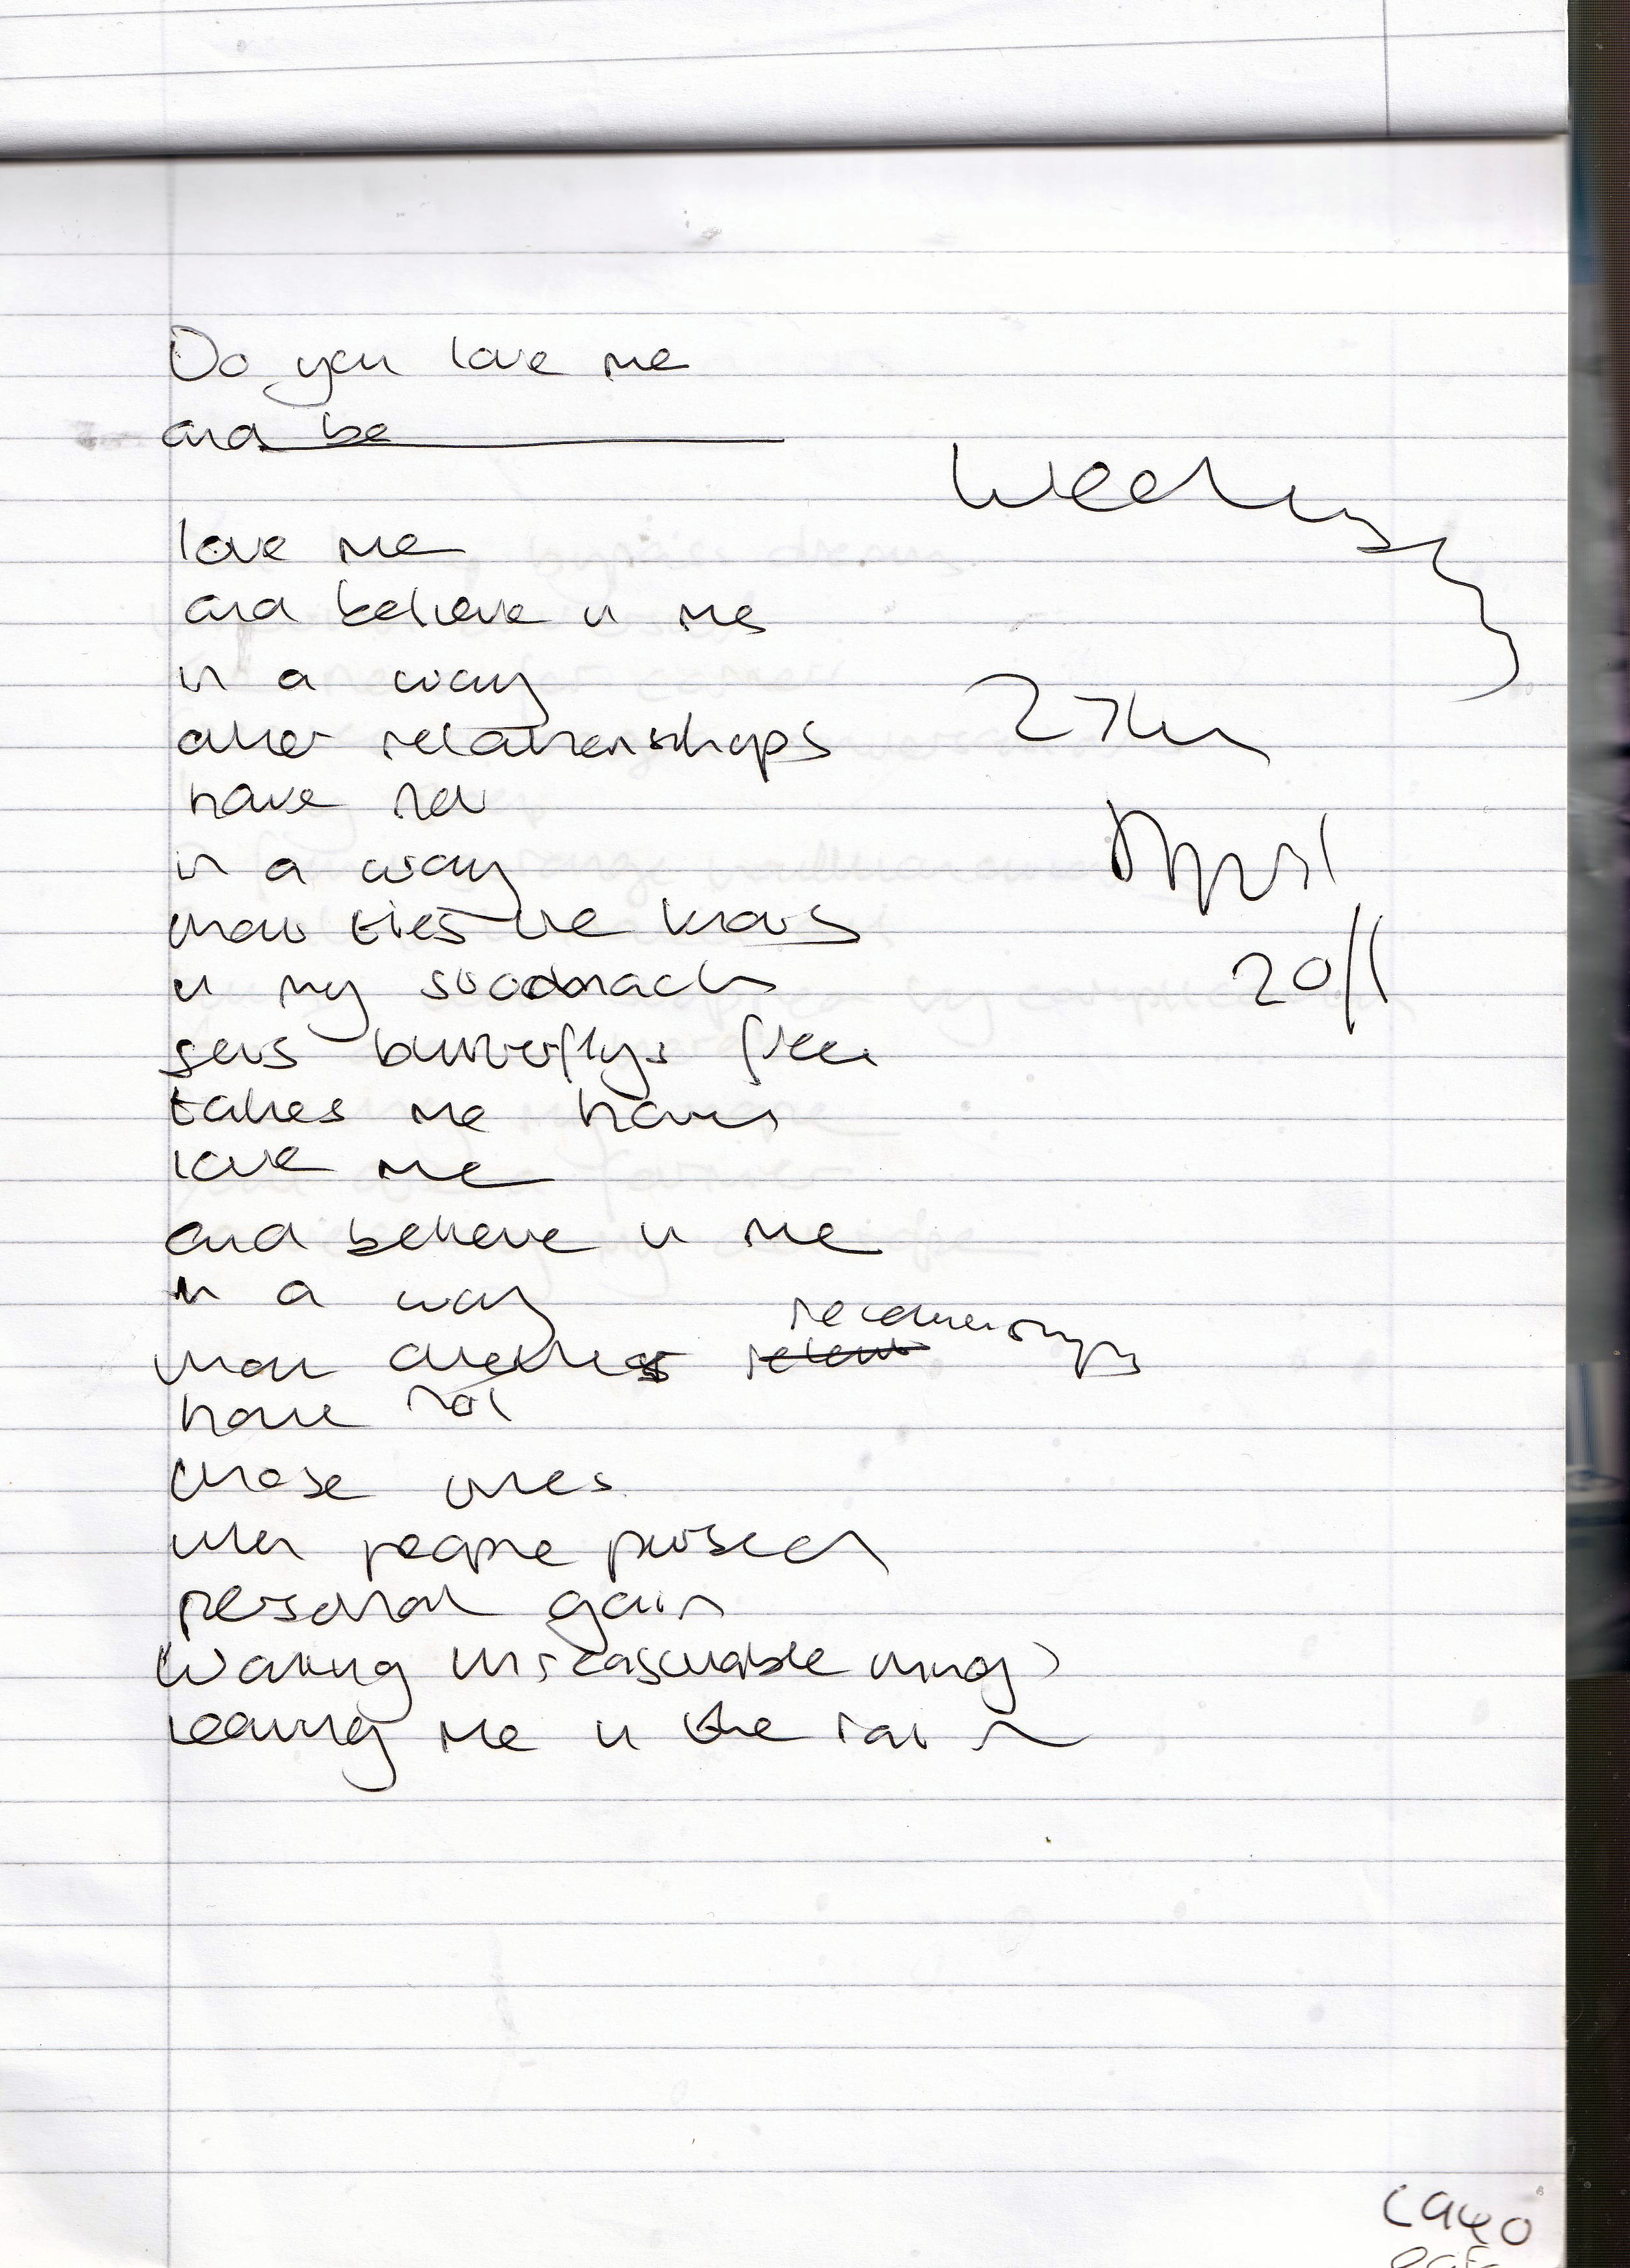 Do you love me
and be
love me
and believe in me
in a way
other relationships
have not
in a way
that ties the knots
in my stoomach
sets butterflys free
takes me
love me
and believe in me
in a way
that
relationships
have not
those ones
when people
personal gain
Wanting unreasonable things
leaving me in the rain
27th
April
2011